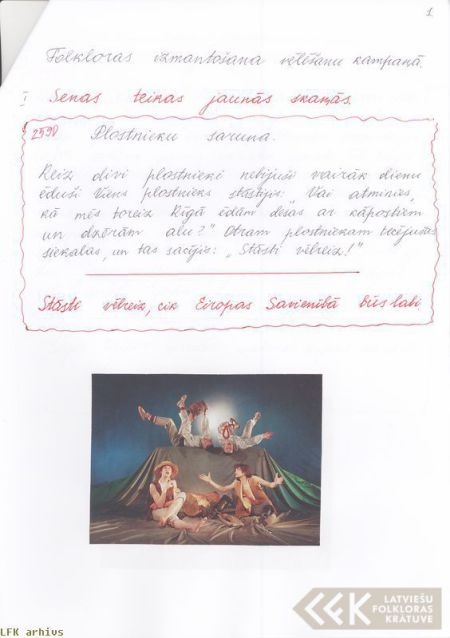 1
Folkloras izmantošana vēlēšanu kampaņā.
I Senas teikas jaunās skaņās.
2590 Plostnieku saruna.
Reiz divi plostnieki nebijuši vairāk dienu
ēduši Viens plostnieks stāstījis: "Vai atminies,
kā mēs toreiz Rīgā ēdām desas ar kāpostiem
un dzērām alu?" Otram plostniekam tecējušas
siekalas, un tas sacījis: "Stāsti vēlreiz!"
Stāsti vēlreiz, cik Eiropas Savienībā būs labi
LATVIEŠU
FOLKLORAS
KRĀTUVE
LFK arhīvs